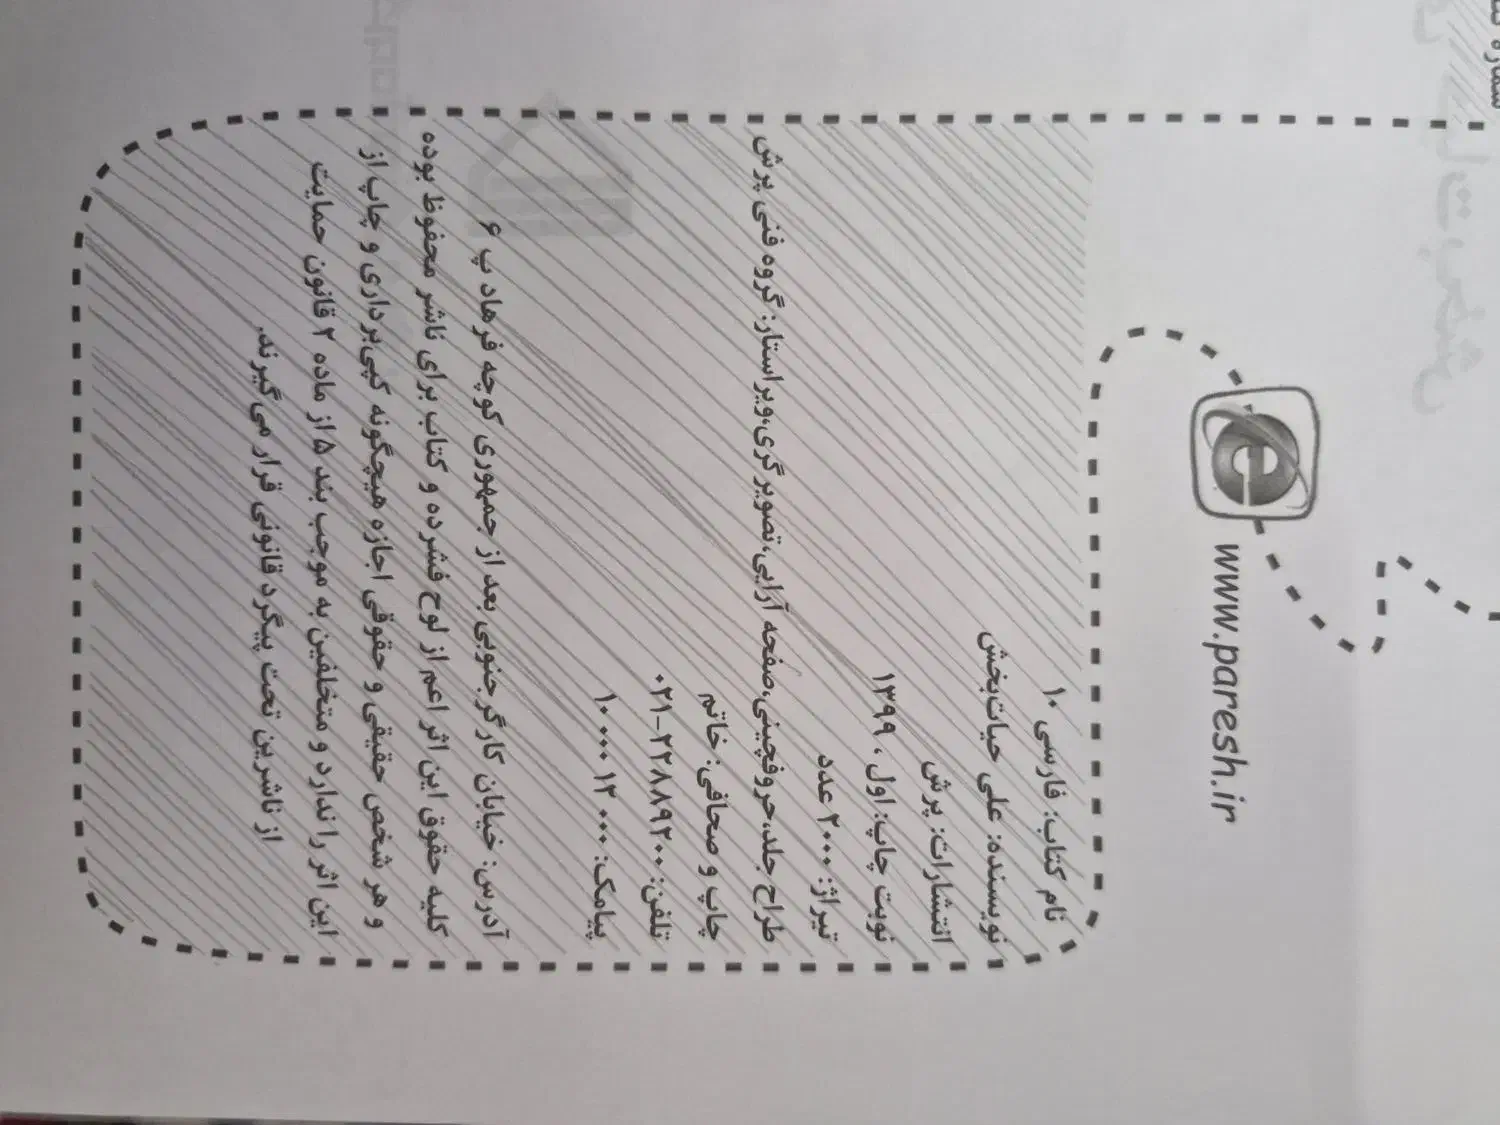 www.paresh.ir
نام کتاب: فارسی ۱۰
نویسنده: علی حیات‌بخش
انتشارات: پرش
نوبت چاپ: اول، ۱۳۹۹
تیراژ: ۲۰۰۰ عدد
طراح جلد،حروفچینی،صفحه آرایی،تصویرگری،ویراستار: گروه فنی پرش
چاپ و صحافی: خاتم
تلفن: ۰۲۱-۲۲۸۸۹۲۰۰
پیامک: ۱۰۰۰۰۱۲۰۰۰
آدرس: خیابان کارگر جنوبی بعد از جمهوری کوچه فرهاد پ ۶
کلیه حقوق این اثر اعم از لوح فشرده و کتاب برای ناشر محفوظ بوده
و هر شخص حقیقی و حقوقی اجازه هیچگونه کپی‌برداری و چاپ از
این اثر را ندارد و متخلفین به موجب بند ۵ از ماده ۲ قانون حمایت
از ناشرین تحت پیگرد قانونی قرار می‌گیرند.